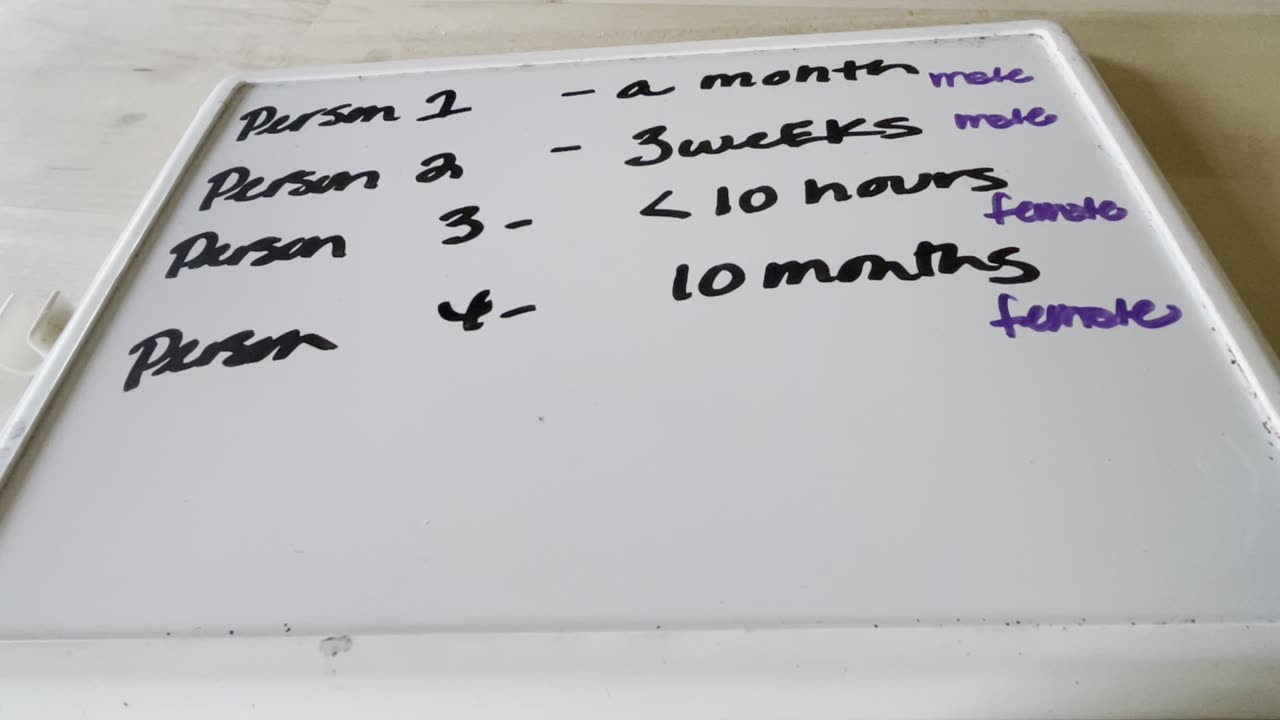 Person 1 - a month male
Person 2 - 3 weeks male
Person 3 - < 10 hours female
Person 4 - 10 months female